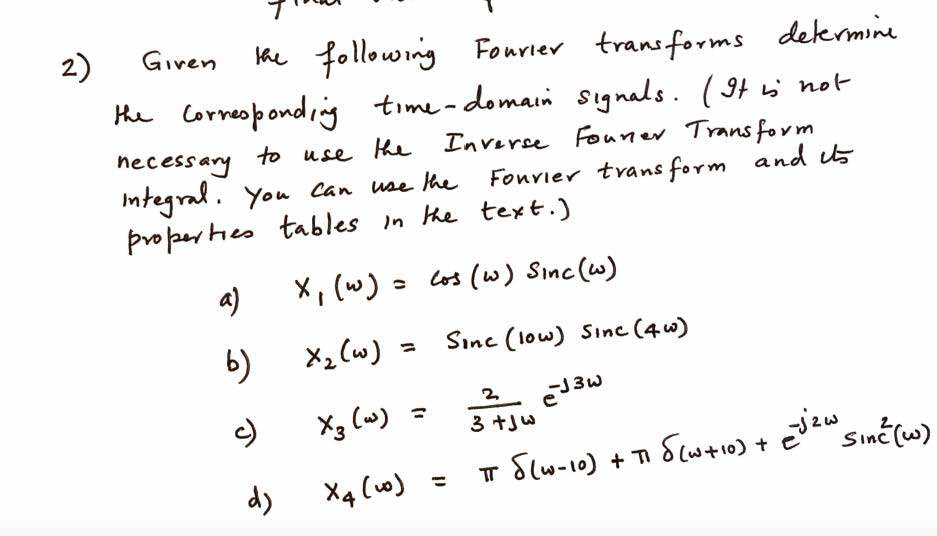 2) Given the following Fourier transforms determine
the corresponding time-domain signals. (It is not
necessary to use the Inverse Fourier Transform
Integral. You can use the Fourier transform and its
properties tables in the text.)
a) X₁(ω) = cos(ω) Sinc(ω)
b) X₂(ω) = Sinc(10ω) Sinc(4ω)
c) X₃(ω) = 2/(3+jω) e^(-j3ω)
d) X₄(ω) = π δ(ω-10) + π δ(ω+10) + e^(-j2ω) Sinc²(ω)